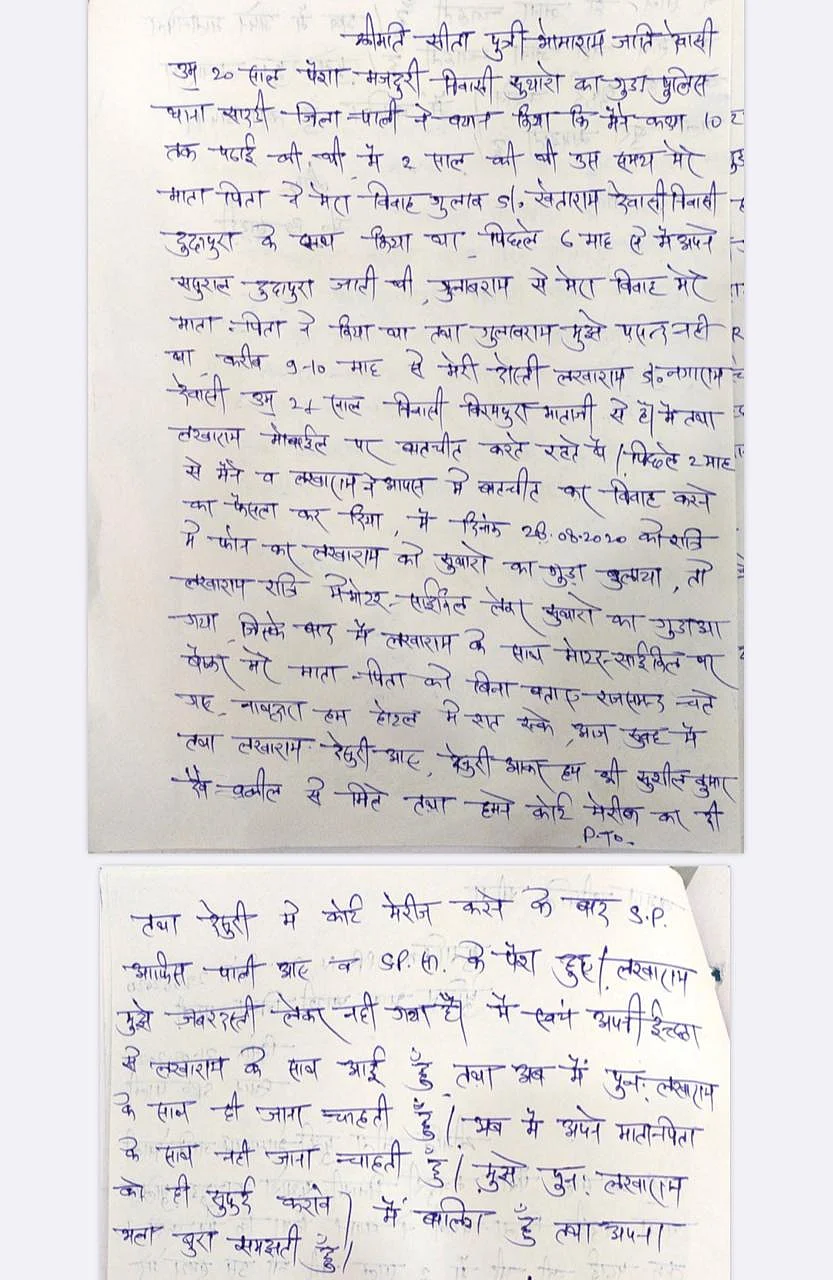 श्रीमति सीता पुत्री भोमाराम जाति देवासी
उम्र 20 साल पेशा मजदुरी निवासी सुथारो का गुडा पुलिस
थाना सादडी जिला पाली ने बयान किया कि मैने कक्षा 10
तक पढाई की थी में 2 साल की थी उस समय मेरे
माता पिता ने मेरा विवाह गुलाब S/o खेताराम देवासी निवासी
दुदापुरा के साथ किया था पिछले 6 माह से मै अपने
ससुराल दुदापुरा जाती थी, गुलाबराम से मेरा विवाह मेरे
माता-पिता ने किया था तथा गुलाबराम मुझे पसन्द नही
था करीब 9-10 माह से मेरी दोस्ती लखाराम S/o नगाराम
देवासी उम्र 21 साल निवासी माताजी से है। मै तथा
लखाराम मोबाईल पर बातचीत करते रहते थे। पिछले 2 माह
से मैने व लखाराम ने आपस मे बातचीत कर विवाह करने
का फैसला कर दिया, मै दिनांक 08.2020 को रात्रि
मे फोन कर लखाराम को सुथारो का गुडा बुलाया, तो
लखाराम रात्रि मे मोटर-साईकिल लेकर सुथारो का गुडा आ
गया जिसके बाद मै लखाराम के साथ मोटर-साईकिल पर
बैठकर मेरे माता-पिता को बिना बताए राजसमन्द चले
गए, हम होटल मे रात रुके, आज सुबह मै
तथा लखाराम देसुरी आए, देसुरी आकर हम श्री सुशील कुमार
वकील से मिले तथा हमने कोर्ट मेरीज कर दी
P.T.O.
तथा देसुरी मे कोर्ट मेरीज करने के बाद S.P.
आफिस पाली आए व SP. सा. के पेश हुए। लखाराम
मुझे जबरदस्ती लेकर नही गया है। मै स्वयं अपनी ईच्छा
से लखाराम के साथ आई हुँ तथा अब मैं पुनः लखाराम
के साथ ही जाना चाहती हुँ। अब मै अपने माता-पिता
के साथ नही जाना चाहती हुँ। मुझे पुनः लखाराम
को ही सुपुर्द करावे। मैं बालिग हुँ तथा अपना
भला बुरा समझती हुँ।